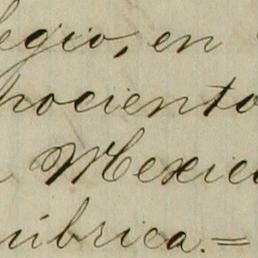 legio, en
hociento
Mexic
úbrica.=